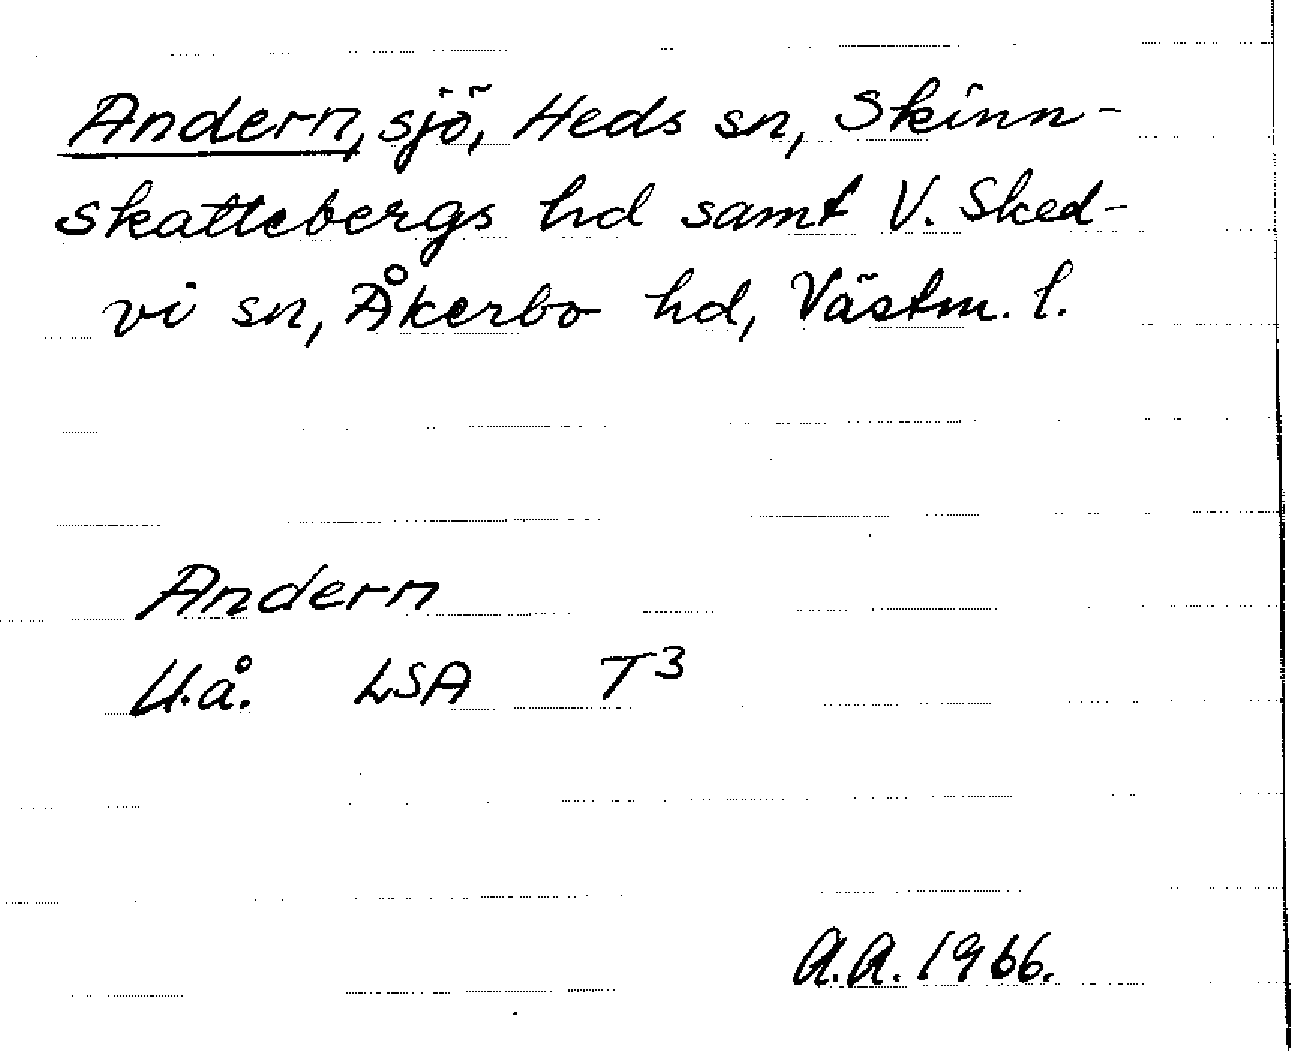 Andern, sjö, Heds sn, Skinn-
skattebergs hd samt V. Sked-
vi sn, Åkerbo hd, Västm. l.
Andern
U.å. LSA T3
A.A. 1966.